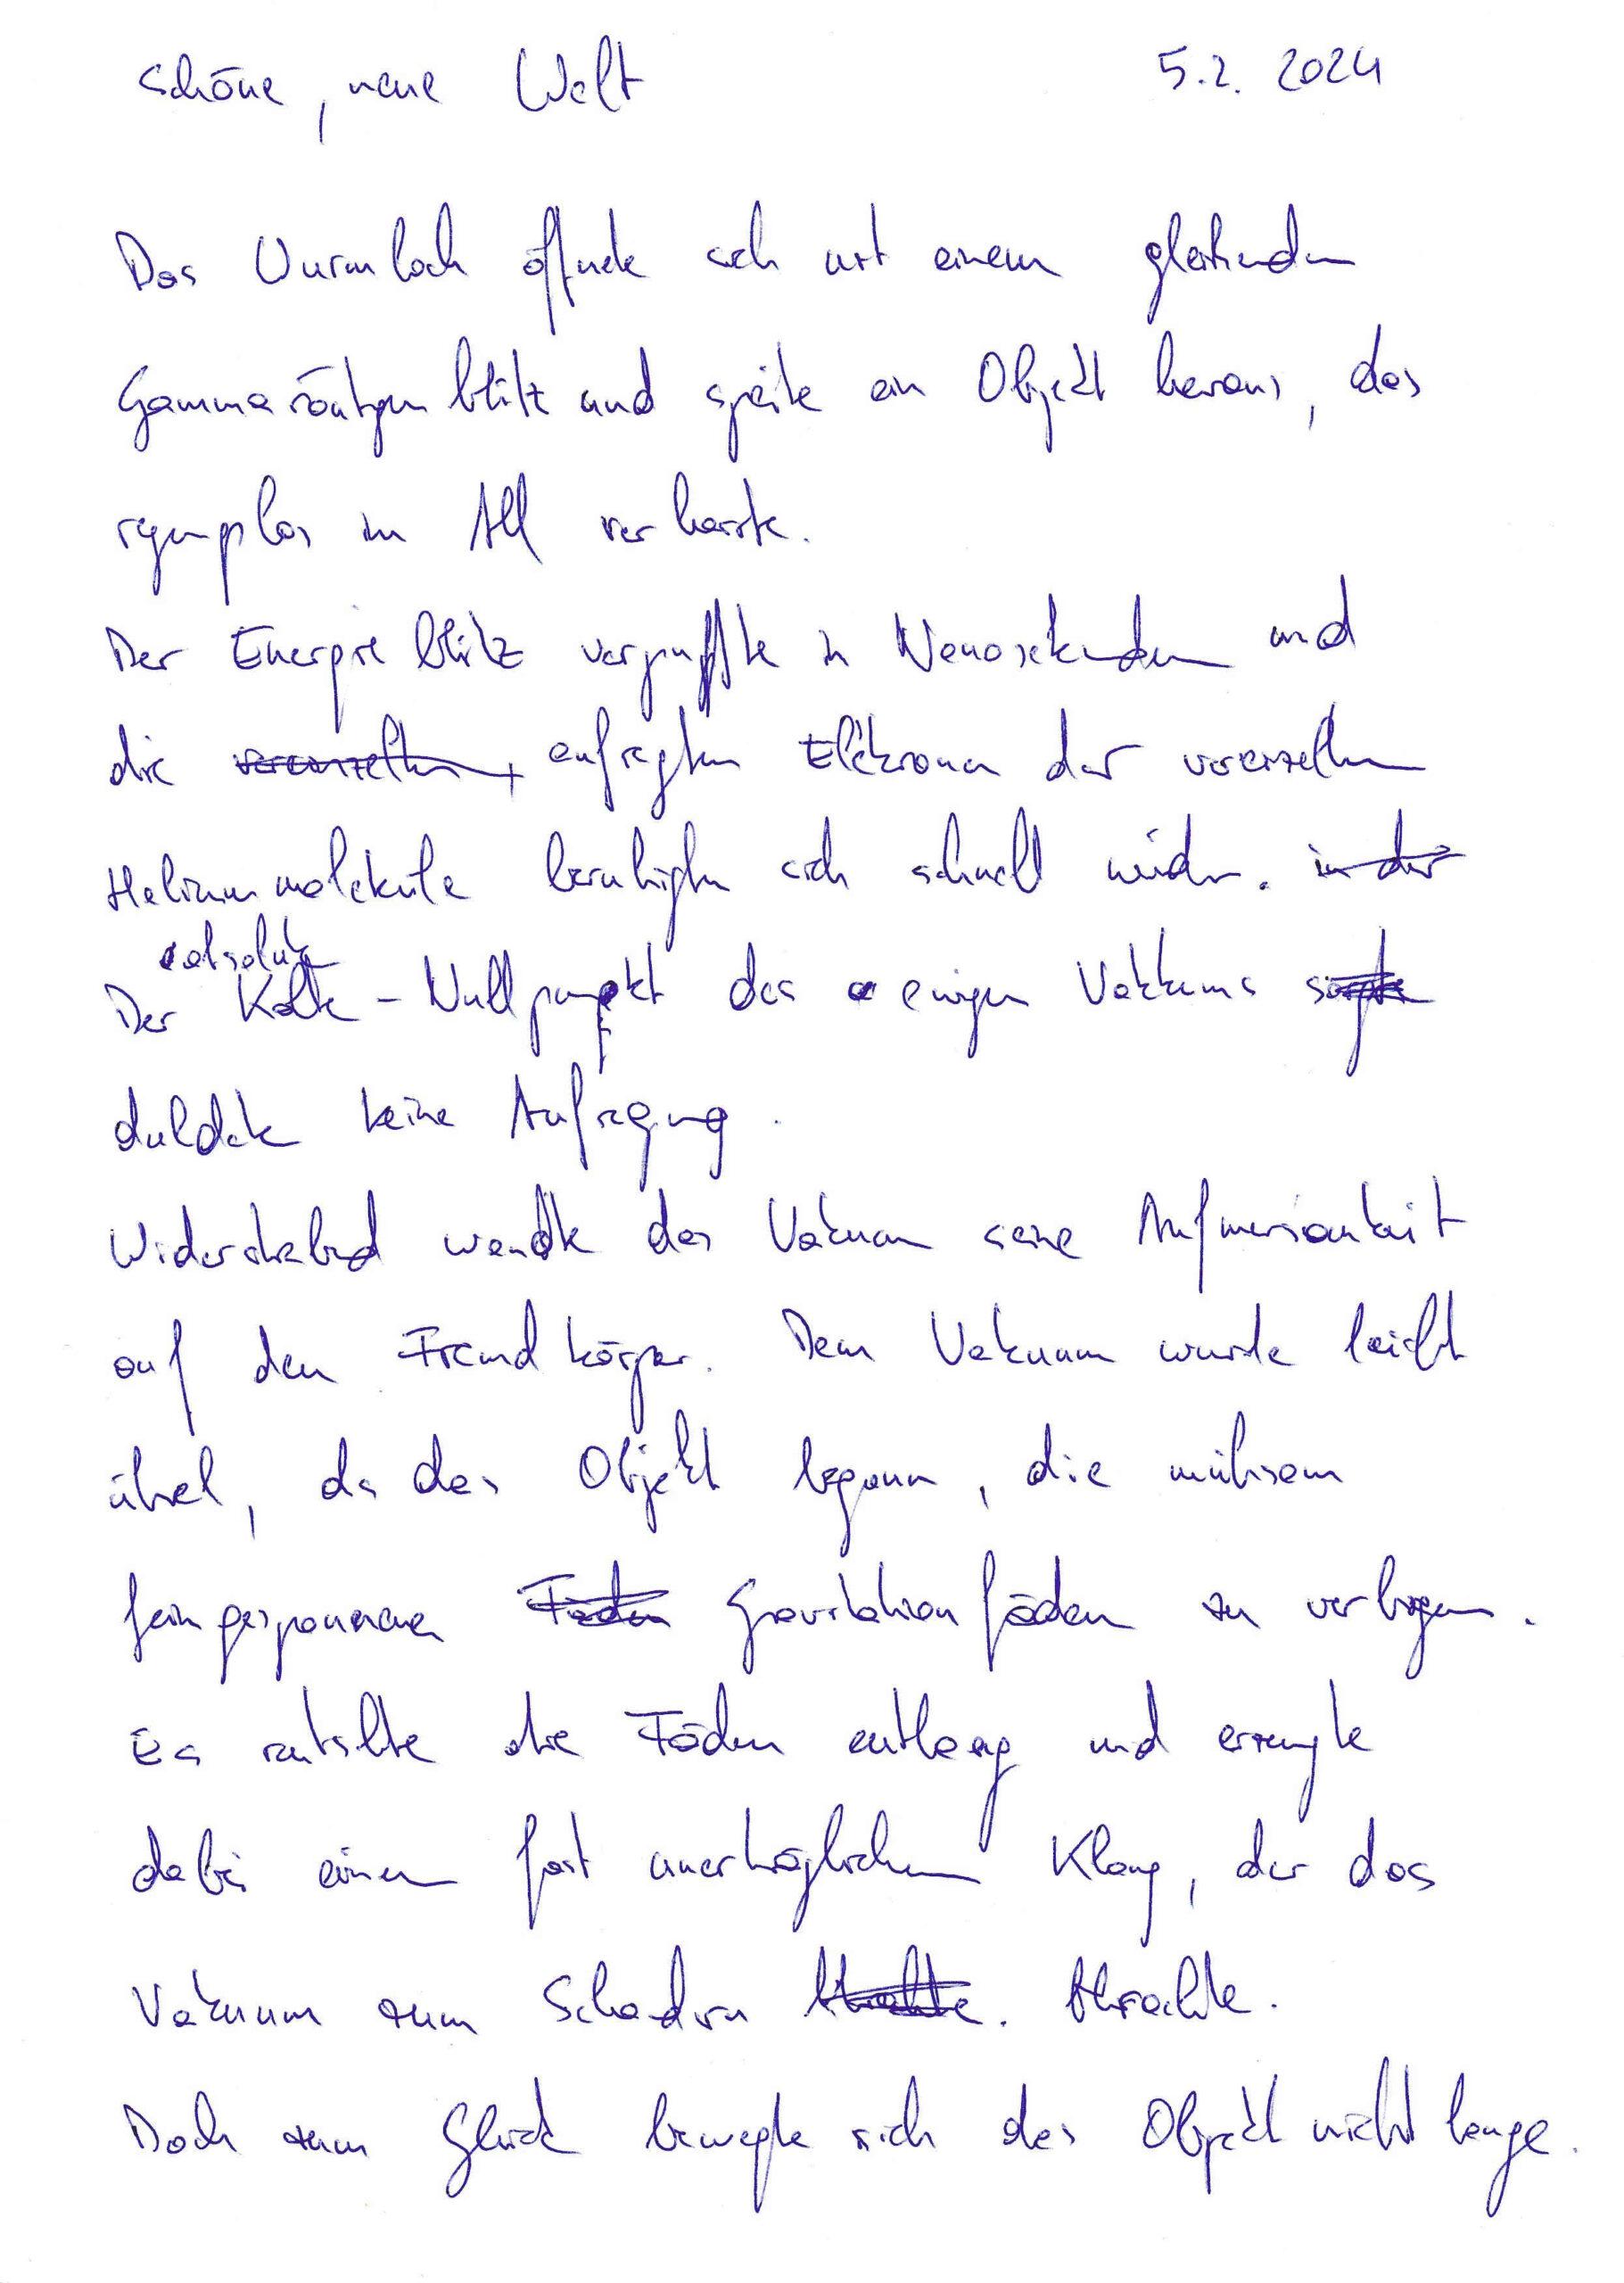 schöne, neue Welt 5.2. 2024
Das Wurmloch öffnete sich mit einem gleißenden
Gammaröntgenblitz und speite ein Objekt heraus, das
regungslos im All verharrte.
Der Energieblitz verpuffte in Nanosekunden und
die vereinzelten aufregten Elektronen der vereinzelten
Heliummoleküle beruhigten sich schnell wieder. in der
absolute
Der Kälte-Nullpunkt des ewigen Vakkums sorgte
duldete keine Aufregung.
Widerstrebend wandte das Vakuum seine Aufmerksamkeit
auf den Fremdkörper. Dem Vakuum wurde leicht
übel, da das Objekt begann, die mühsam
feingesponnenen Fäden Gravitationsfäden zu verbiegen.
Es rutschte die Fäden entlang und erzeugte
dabei einen fast unerträglichen Klang, der das
Vakuum zum Schaudern brachte. brachte.
Doch zum Glück bewegte sich das Objekt nicht lange.